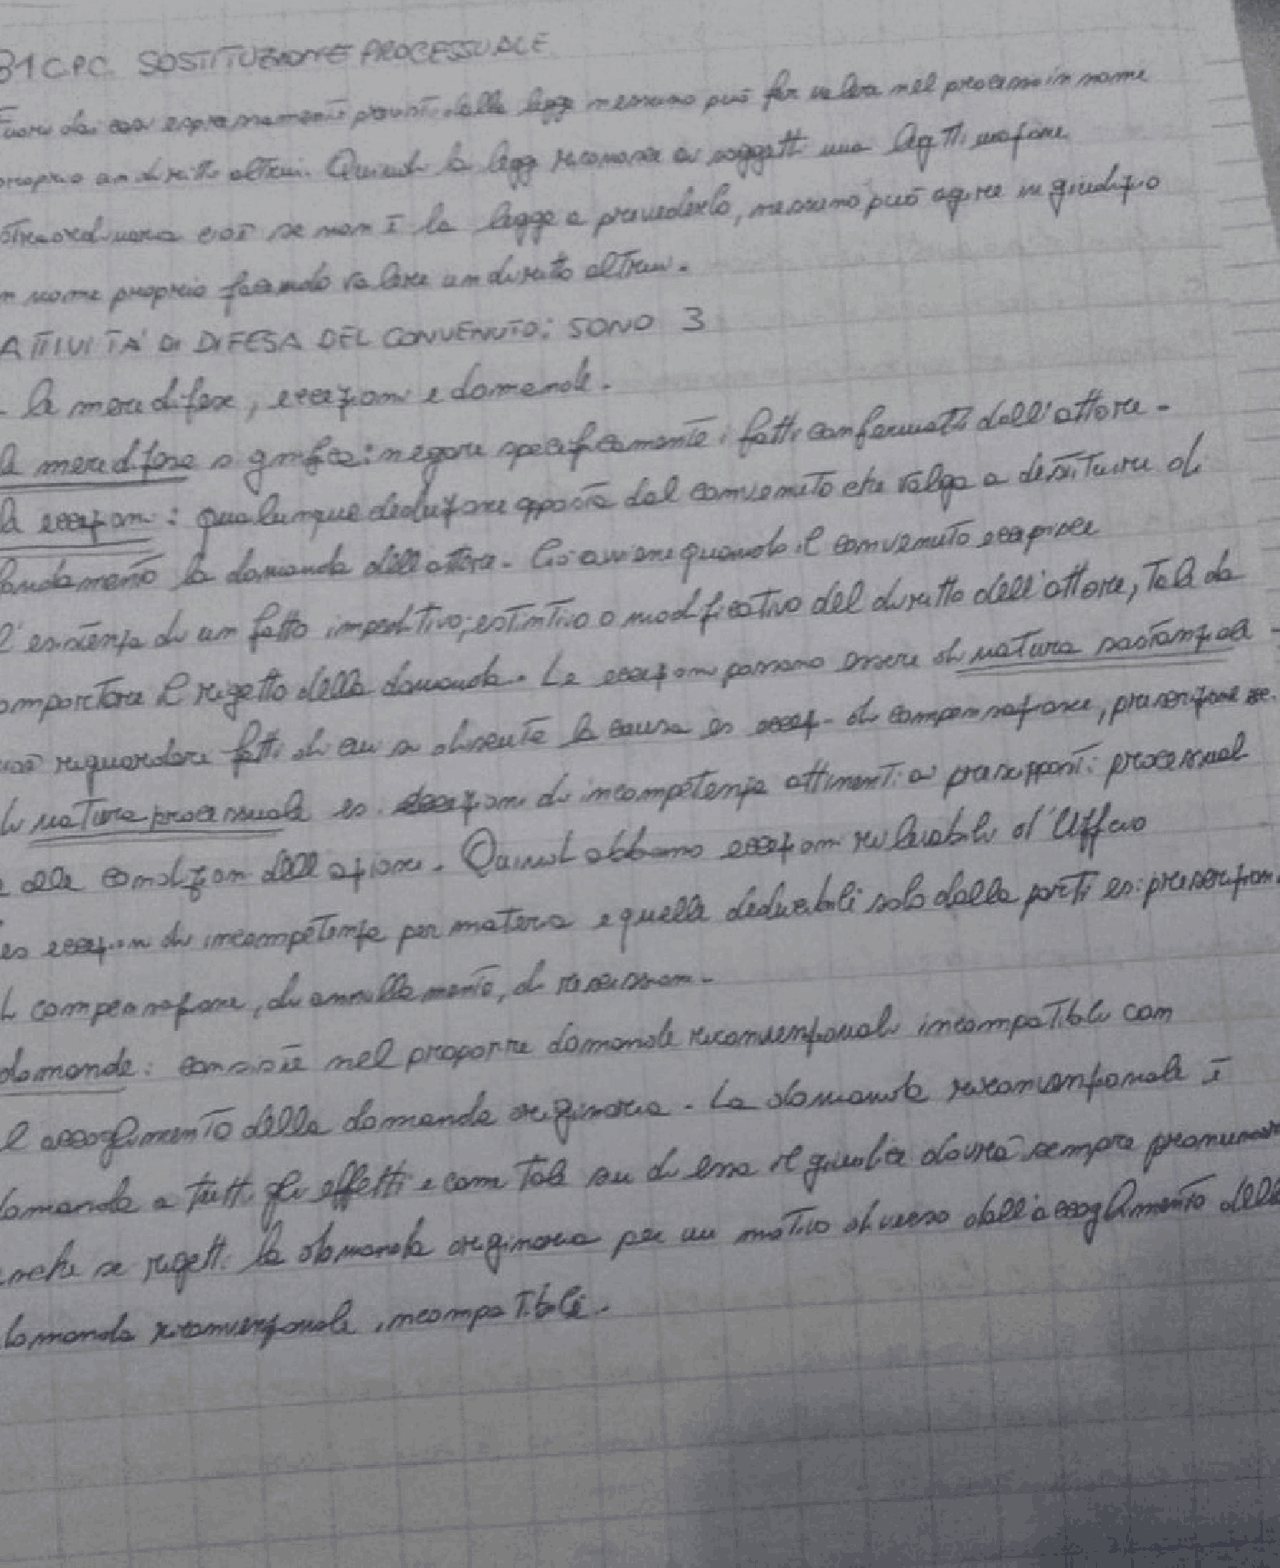 81 C.P.C. SOSTITUZIONE PROCESSUALE
Fuori dai casi espressamente previsti dalla legge nessuno può far valere nel processo in nome
proprio un diritto altrui. Quindi la legge riconosce ai soggetti una legittimazione
straordinaria cioè se non è la legge a prevederlo, nessuno può agire in giudizio
in nome proprio facendo valere un diritto altrui.
ATTIVITÀ DI DIFESA DEL CONVENUTO: SONO 3
- le mere difese, eccezioni e domande.
le mere difese significa: negare specificamente i fatti confermati dall'attore.
le eccezioni: qualunque deduzione opposta dal convenuto che valga a destituire di
fondamento la domanda dell'attore. Ciò avviene quando il convenuto eccepisce
l'esistenza di un fatto impeditivo, estintivo o modificativo del diritto dell'attore, tale da
comportare il rigetto della domanda. Le eccezioni possono essere di natura sostanziale
cioè riguardare fatti di cui si discute la causa es eccez. di compensazione, prescrizione ec.
di natura processuale es. eccezioni di incompetenza attinenti ai presupposti processuali
e alle condizioni dell'azione. Quindi abbiamo eccezioni rilevabili d'Ufficio
es eccezioni di incompetenza per materia e quelle deducibili solo dalle parti es: prescrizione
di compensazione, di annullamento, di rescissione.
domande: consiste nel proporre domande riconvenzionali incompatibili con
l'accoglimento della domanda originaria. La domanda riconvenzionale è
domanda a tutti gli effetti e come tale su di essa il giudice dovrà sempre pronunciarsi
anche se rigetti la domanda originaria per un motivo diverso dall'accoglimento della
domanda riconvenzionale incompatibile.